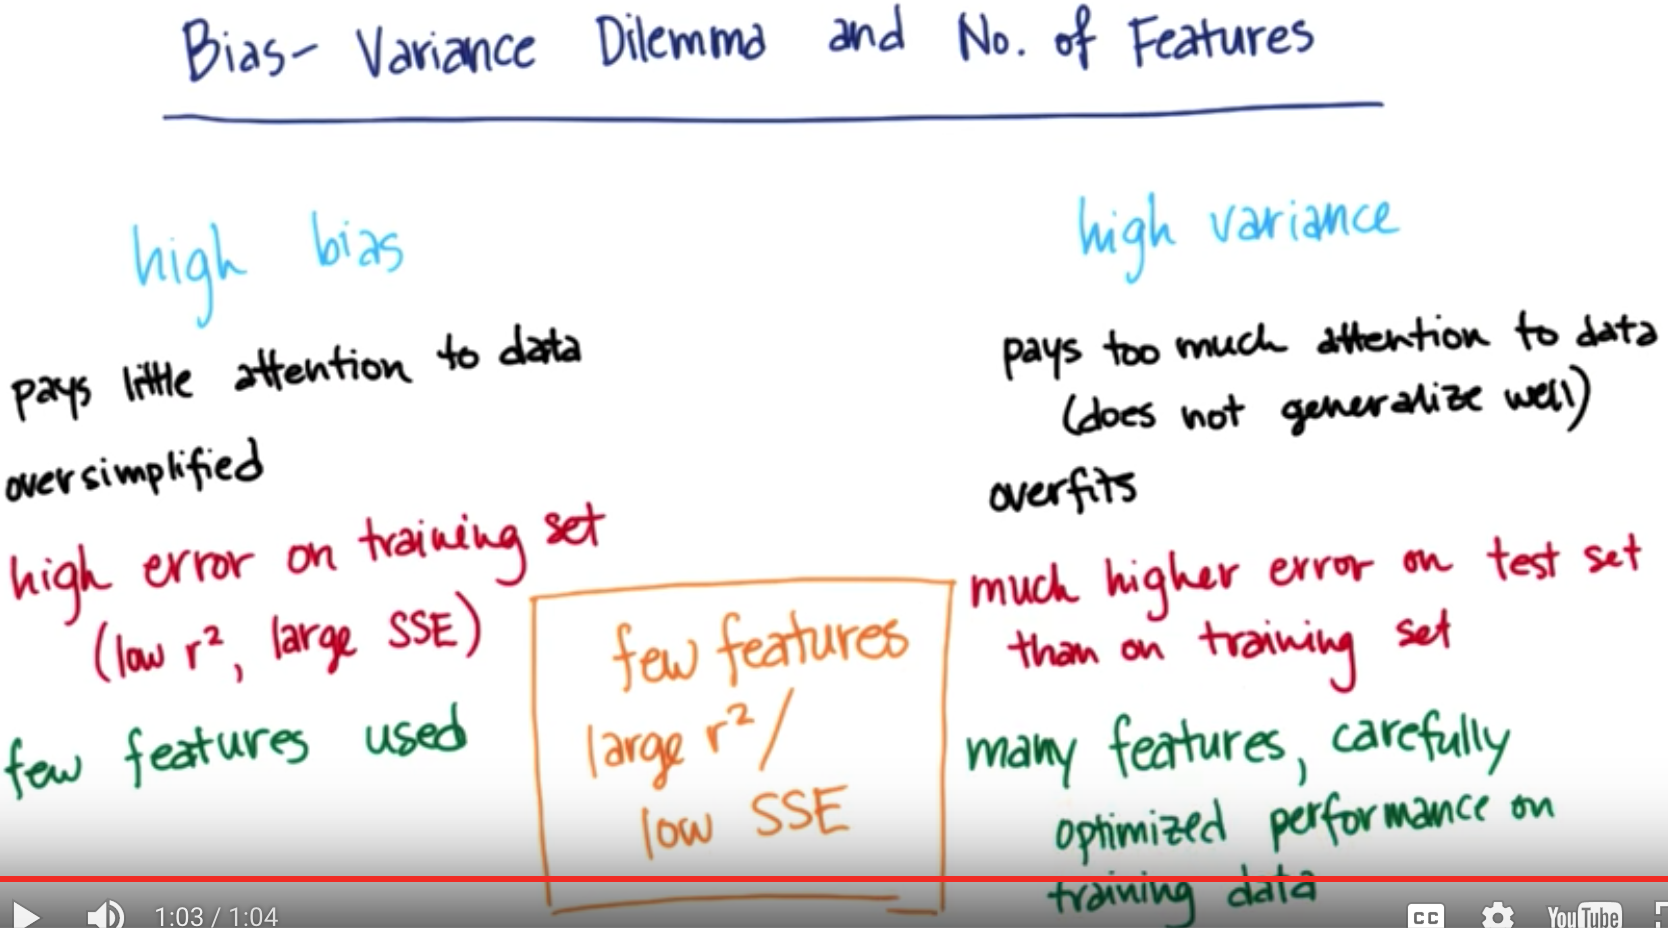 Bias- Variance Dilemma and No. of Features
high bias
pays little attention to data
oversimplified
high error on training set
(low r², large SSE)
few features used
few features
large r² /
low SSE
high variance
pays too much attention to data
(does not generalize well)
overfits
much higher error on test set
than on training set
many features, carefully
optimized performance on
training data
1:03 / 1:04
CC
YouTube